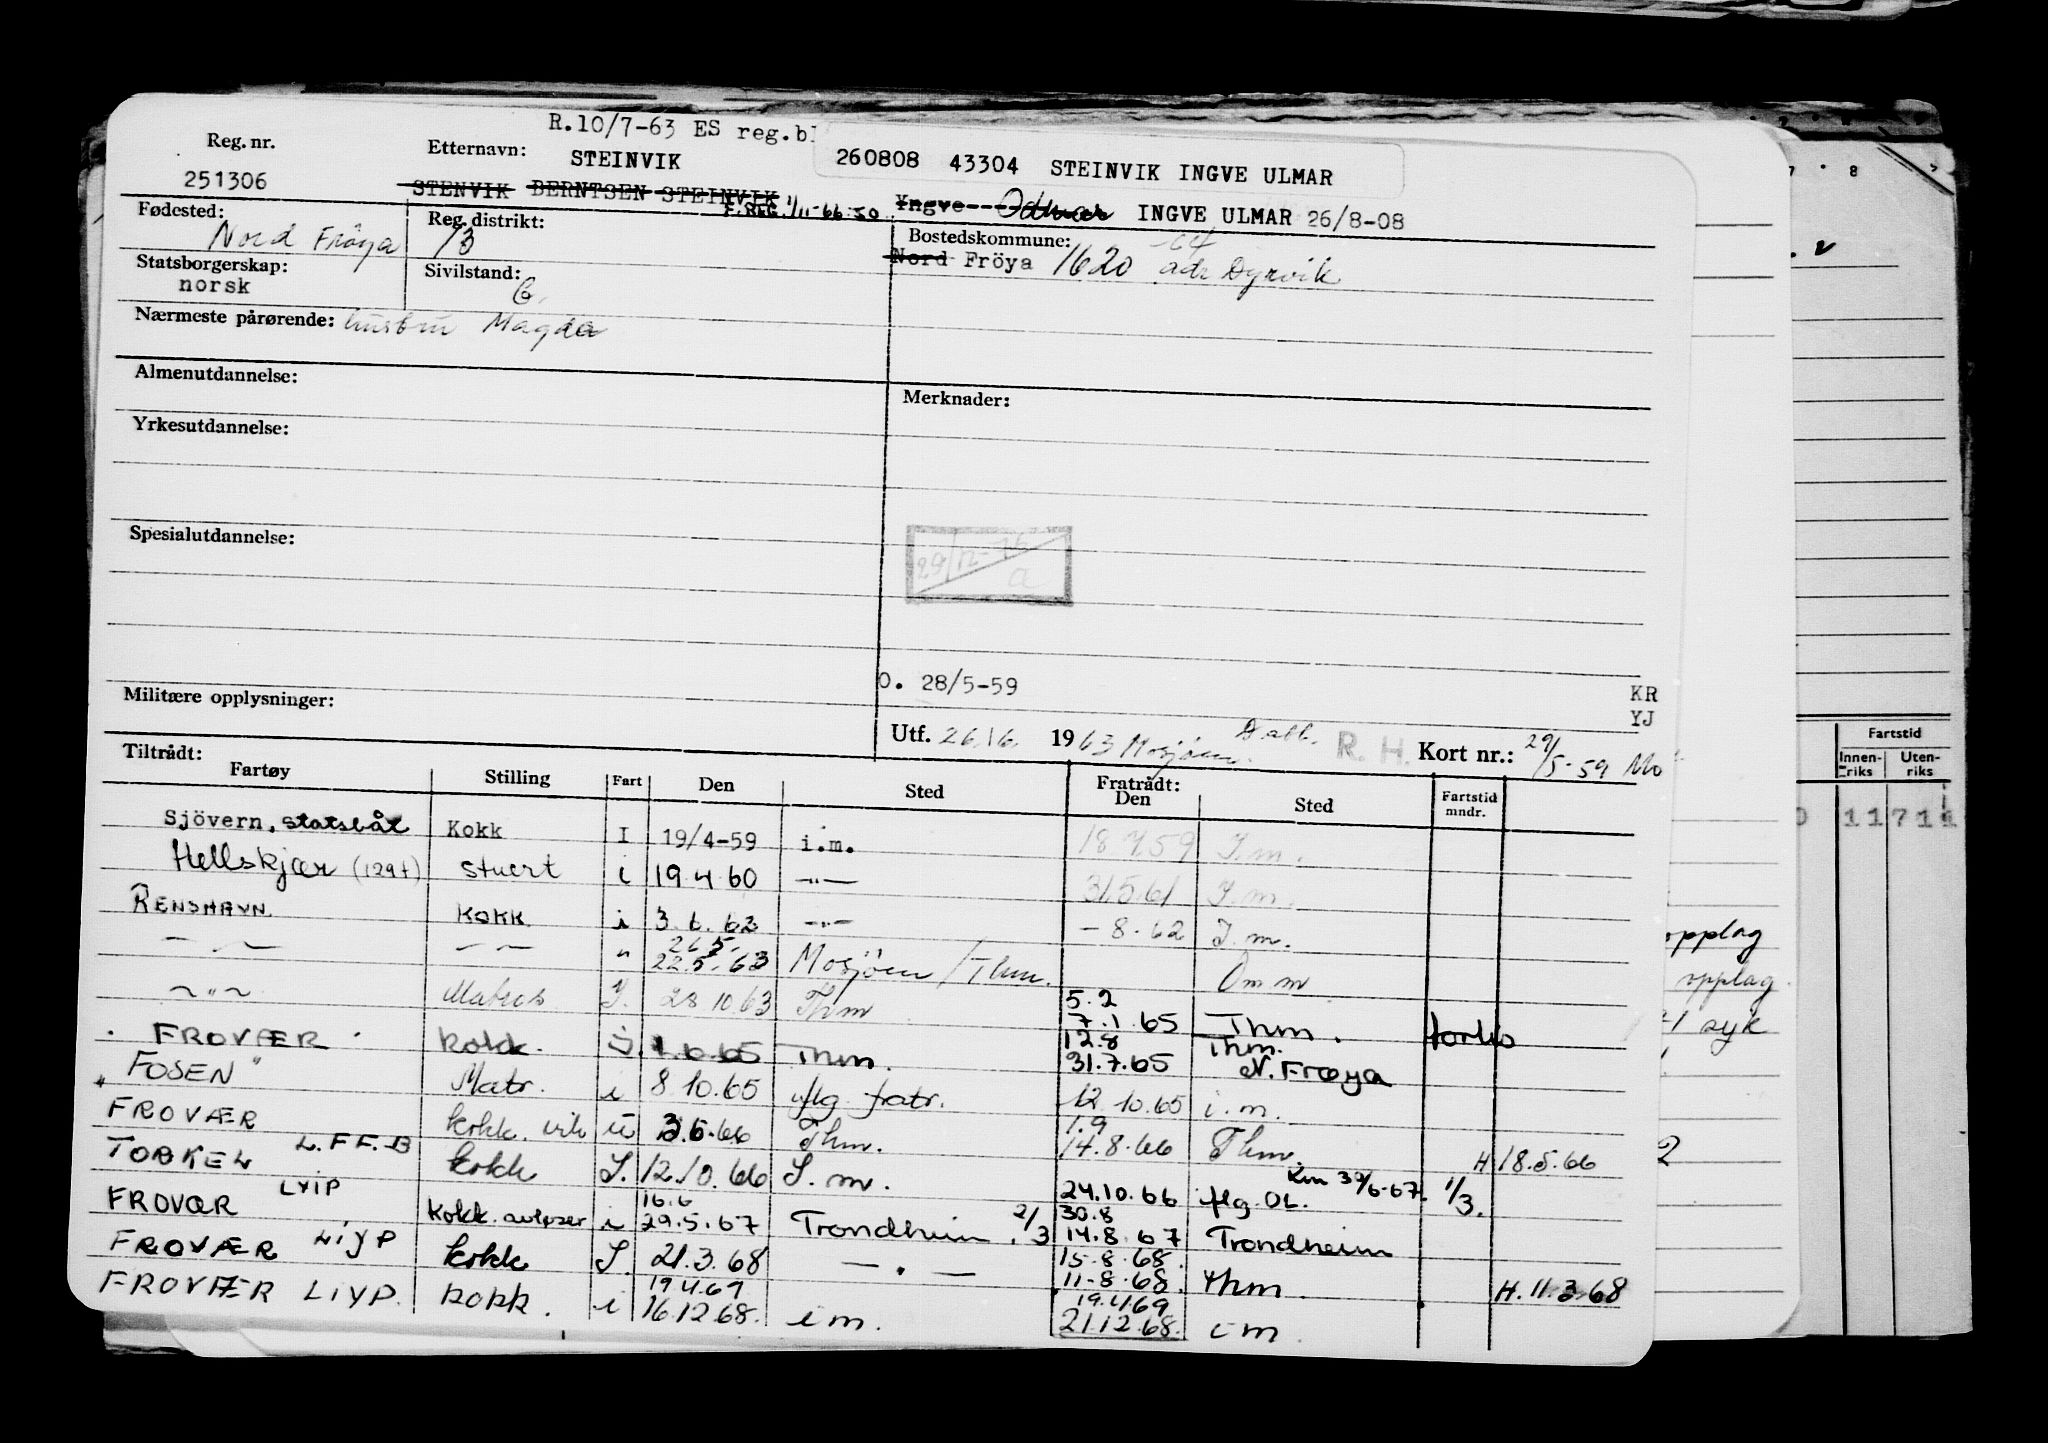 R.10/7-63 ES reg.bl
Reg. nr. Etternavn: 260808 43304 STEINVIK INGVE ULMAR
251306 STEINVIK
STENVIK BERNTSEN STEINVIK
F.REG. 1/11-66 SO Yngve Odmar INGVE ULMAR 26/8-08
Fødested: Reg. distrikt: Bostedskommune: -64
Nord Fröya 13 Nord Fröya 1620 adr Dyrvik
Statsborgerskap: Sivilstand:
norsk G.
Nærmeste pårørende: hustru Magda
Almenutdannelse: Merknader:
Yrkesutdannelse:
Spesialutdannelse:
29/12-76
a
O. 28/5-59 KR
Militære opplysninger: YJ
Utf. 26/6 1963 Mosjöen. R. H. Kort nr.: 29/5-59 Mo
Tiltrådt: Fratrådt:
Fartøy Stilling Fart Den Sted Den Sted Fartstid mndr.
Sjövern, statsbåt Kokk I 19/4-59 i.m. 18 7 59 I.m.
Hellskjær (129t) stuert i 19 4 60 —"— 31.5.61 I.m.
RENSHAVN KOKK i 3.6.62 —"— - 8.62 I.m.
—"— —"— " 26.5. 22.5.63 Mosjöen / Thm. Om m
—"— Matros I. 28 10 63 Thm 5.2 7.1.65 Thm.
FROVÆR kokk. i 1.6.65 Thm. 12.8 31.7.65 Thm. N. Frøya
"FOSEN" Matr. i 8.10.65 iflg. fratr. 12.10.65 i.m.
FROVÆR kokk. vik u 3.6.66 Thm. 1.9 14.8.66 Thm. H 18.5.66
L.F.F.B kokk I. 12.10.66 I.m. 24.10.66 iflg. OL. 30/6-67. 1/3.
FROVÆR LYIP Kokk. avløser i 16.6 29.5.67 Trondheim 2/3 30.8 14.8.67 Trondheim
FROVÆR LIYP kokk I. 21.3.68 —"— 15-8-68. 11-8-68. Thm. H. 11.3.68
FROVÆR LIYP. kokk. i 19.4.69 16.12.68. i m. 19.4.69 21.12.68. i m.
Fartstid
Innenriks Utenriks
0 11 71
opplag
opplag
syk
2